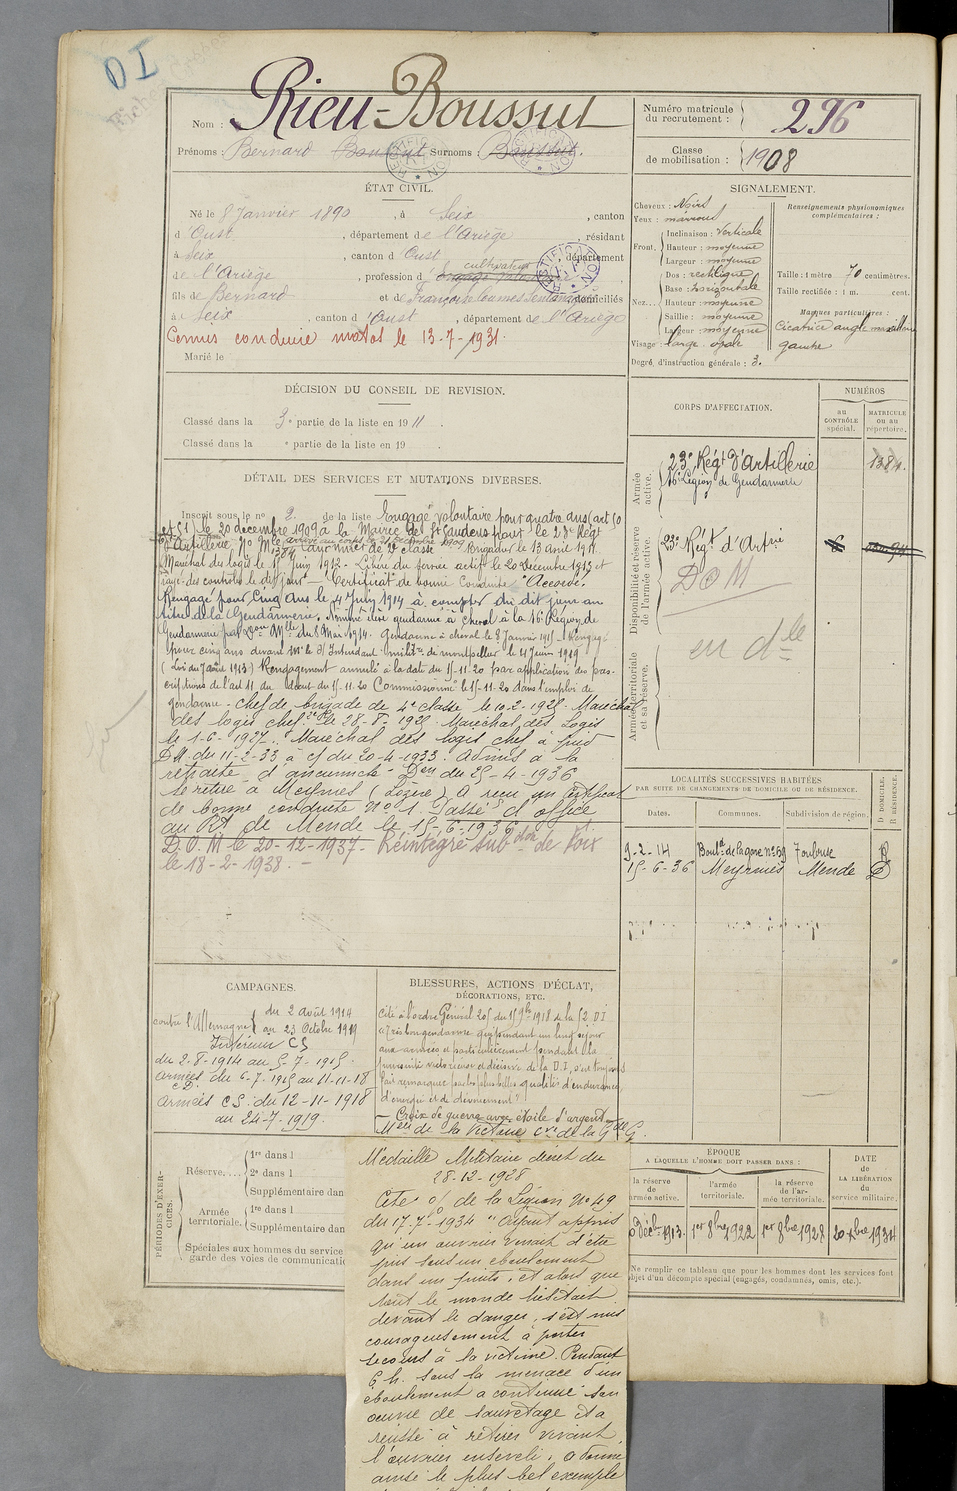 OI
Nom : Rieu-Boussut
Prénoms : Bernard Boussut Surnoms : Boussut.
RECTIFICATION
ÉTAT CIVIL.
Né le 8 Janvier 1890, à Seix, canton
d'Oust, département de l'Ariège, résidant
à Seix, canton d'Oust, département
de l'Ariège, profession d cultivateur
fils de Bernard et de Françoise domiciliés
à Seix, canton d'Oust, département de l'Ariège
Permis conduire motos le 13-7-1931.
Marié le
Numéro matricule du recrutement : 296
Classe de mobilisation : 1908
SIGNALEMENT.
Cheveux : Noirs
Yeux : marrons
Front. Inclinaison : Verticale
Hauteur : moyenne
Largeur : moyenne
Nez... Dos : rectiligne
Base : horizontale
Hauteur : moyenne
Saillie : moyenne
Largeur : moyenne
Visage : large. ovale
Degré d'instruction générale : 3.
Renseignements physionomiques complémentaires :
Taille : 1 mètre 70 centimètres.
Taille rectifiée : 1 m. cent.
Marques particulières :
Cicatrice angle maxillaire
gauche
DÉCISION DU CONSEIL DE REVISION.
Classé dans la 3e partie de la liste en 1911.
Classé dans la e partie de la liste en 19 .
DÉTAIL DES SERVICES ET MUTATIONS DIVERSES.
Inscrit sous le no 2. de la liste Engagé volontaire pour quatre ans (art 50
et 51) le 20 décembre 1909 à la Mairie de St Gaudens pour le 23e Régt
d'Artillerie, No Mle 1384 arrivé au corps le 21 décembre 1909 canonnier de 2e classe Brigadier le 13 avril 1911.
Maréchal des logis le Juin 1912. Libéré du service actif le 20 Décembre 1913 et
rayé des contrôles le dit jour — Certificat de bonne Conduite "Accordé.
Rengagé pour Cinq ans le 4 Juin 1914 à compter du dit jour au
titre de la Gendarmerie. Nommé élève gendarme à cheval à la 16e Légion de
Gendarmerie par Mlle du 8 Mai 1914. Gendarme à cheval le 8 Janvier 1915 - Rengagé
pour cinq ans devant Mr le S/ Intendant militre de Montpellier le 4 Juin 1919
(Loi du 7 août 1913) Rengagement annulé à la date du 15-11-20 par application des pres
criptions de l'art 11 du décret du 15-11-20 Commissionné le 15-11-20 dans l'emploi de
gendarme - Chef de brigade de 4e classe le 10-2-1925. Maréchal
des logis chef le 28-8-1925. Maréchal des Logis
le 1-6-1927. Maréchal des logis chef à pied
DM. du 11-2-33 à c/ du 20-4-1933. Admis à la
retraite d'ancienneté Don du 25-4-1936
se retire à Meyrueis (Lozère) A reçu un certificat
de bonne conduite No 1. Passé d'office
au Rt de Mende le 15-6-1936
D.O.M le 20-12-1937. Réintégré subdon de Foix
le 18-2-1938. -
CORPS D'AFFECTATION.
NUMÉROS
au CONTRÔLE spécial.
MATRICULE ou au répertoire.
Armée active.
23e Régt d'Artillerie 1384.
16e Légion de Gendarmerie
Disponibilité et réserve de l'armée active.
23e Regt d'Artrie
DOM
Armée territoriale et sa réserve.
en dle
LOCALITÉS SUCCESSIVES HABITÉES
PAR SUITE DE CHANGEMENTS DE DOMICILE OU DE RÉSIDENCE.
Dates. Communes. Subdivision de région. D DOMICILE. R RÉSIDENCE.
9-2-14 Boulrd de la gare no 69 Toulouse R
15-6-36 Meyrueis Mende D
CAMPAGNES.
contre l'Allemagne du 2 août 1914
au 23 Octobre 1919
Intérieur CS
du 2-8-1914 au 5-7-1915.
armées CD. du 6-7-1915 au 11-11-18
armées CS : du 12-11-1918
au 24-7-1919.
BLESSURES, ACTIONS D'ÉCLAT,
DÉCORATIONS, ETC.
Cité à l'ordre Général 205 du 15 9bre 1918 de la 52 DI
"Très bon gendarme qui pendant un long séjour
aux armées et particulièrement pendant la
poursuite victorieuse et décisive de la D.I, s'est toujours
fait remarquer par les plus belles qualités d'endurance,
d'énergie et de dévouement"
— Croix de guerre avec étoile d'argent
Mlle de la Victoire Cve de la Gde G.
Médaille Militaire décret du
28-12-1928
Cité o/ de la Légion No 49
du 17-7-1934 "Ayant appris
qu'un ouvrier venait d'être
pris sous un éboulement
dans un puits, et alors que
tout le monde hésitait
devant le danger, s'est mis
courageusement à porter
secours à la victime. Pendant
6 h. sous la menace d'un
éboulement a continué son
oeuvre de sauvetage et a
réussi à retirer vivant
l'ouvrier enseveli. A donné
ainsi le plus bel exemple
PÉRIODES D'EXERCICES.
Réserve.... 1re dans l
2e dans l
Supplémentaire dan
Armée territoriale. 1re dans l
Supplémentaire dan
Spéciales aux hommes du service
garde des voies de communicatio
ÉPOQUE
A LAQUELLE L'HOMME DOIT PASSER DANS :
la réserve de l'armée active.
l'armée territoriale.
la réserve de l'armée territoriale.
DATE de LA LIBÉRATION du service militaire.
0 Décbre 1913. 1er 8bre 1922 1er 8bre 1928 20 Xbre 1934
Ne remplir ce tableau que pour les hommes dont les services font
objet d'un décompte spécial (engagés, condamnés, omis, etc.).